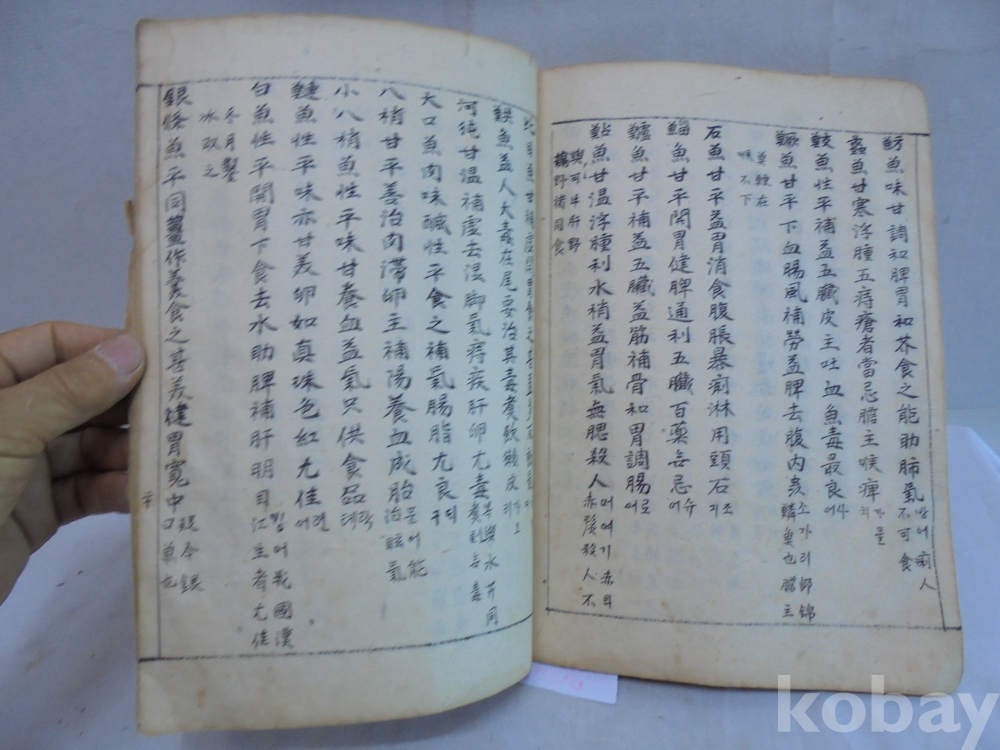 魴魚味甘調和脾胃和芥食之能助肺氣 방어 痢人不可食
蠡魚甘寒浮腫五痔瘡者當忌膽主喉痺 가믈치
鮫魚性平補益五臟皮主吐血魚毒最良 사어
鱖魚甘平下血腸風補勞益脾去腹內 소가리 即錦鱗魚也膽主
不下
石魚甘平益胃消食腹脹暴痢淋用頭石 조기
鯔魚甘平開胃健脾通利五臟百藥無忌 슈어
鱸魚甘平補益五臟益筋補骨和胃調腸 로어
鮎魚甘溫浮腫利水稍益胃氣無腮殺人 메여기 赤目赤鬚殺人不
與可牛肝野
鷄野猪同食
魚益人大毒在尾
河純甘溫補虛去濕脚氣痔疾肝卵尤毒
大口魚肉味鹹性平食之補氣腸脂尤良 대구
八梢甘平善治肉滯卵主補陽養血成胎 문어 能治眩氣
小八梢魚性平味甘養血益氣只供食品 락뎨
鰱魚性平味亦甘美卵如眞珠色紅尤佳 련어
白魚性平開胃下食去水助脾補肝明目 빙어 我國漢江生者尤佳
冬月鑿
氷取之
銀條魚平同薑作羹食之甚美健胃寬中 今銀口魚也
二十
kobay